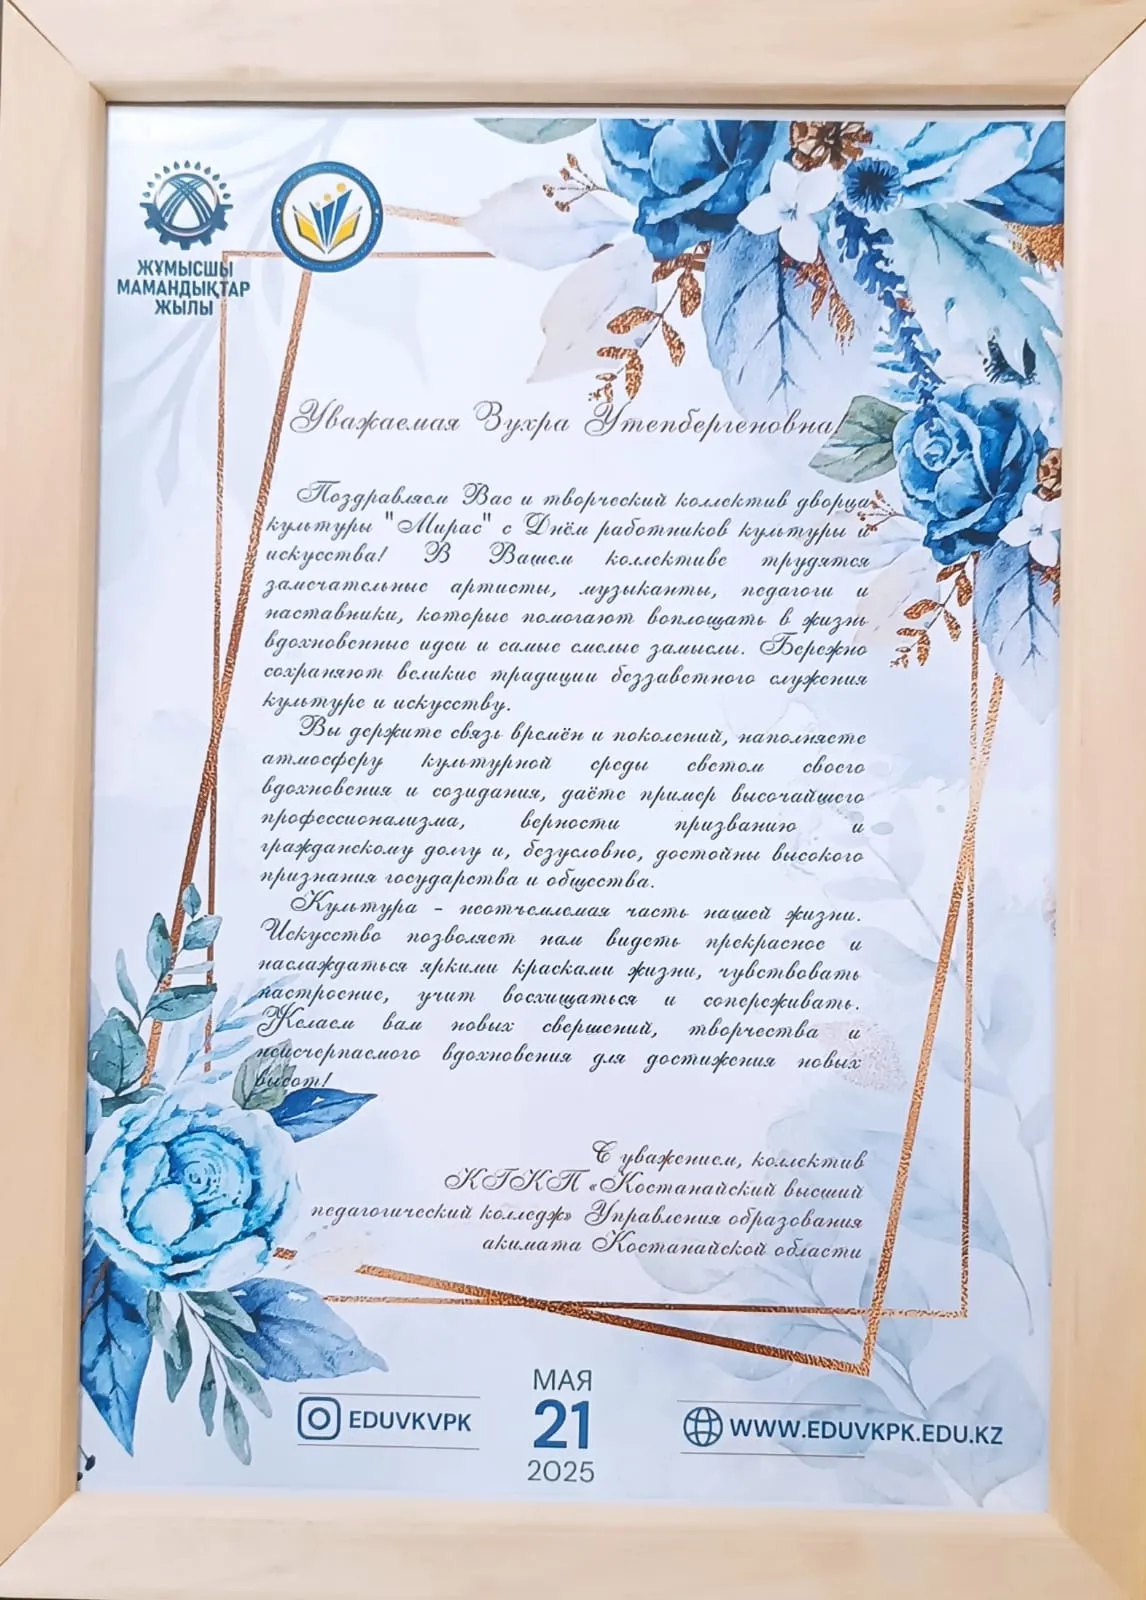 ЖҰМЫСШЫ
МАМАНДЫҚТАР
ЖЫЛЫ
Уважаемая Зухра Утепбергеновна!
Поздравляем Вас и творческий коллектив дворца
культуры "Мирас" с Днём работников культуры и
искусства! В Вашем коллективе трудятся
замечательные артисты, музыканты, педагоги и
наставники, которые помогают воплощать в жизнь
вдохновенные идеи и самые смелые замыслы. Бережно
сохраняют великие традиции беззаветного служения
культуре и искусству.
Вы держите связь времён и поколений, наполняете
атмосферу культурной среды светом своего
вдохновения и созидания, даёте пример высочайшего
профессионализма, верности призванию и
гражданскому долгу и, безусловно, достойны высокого
признания государства и общества.
Культура - неотъемлемая часть нашей жизни.
Искусство позволяет нам видеть прекрасное и
наслаждаться яркими красками жизни, чувствовать
настроение, учит восхищаться и сопереживать.
Желаем вам новых свершений, творчества и
неисчерпаемого вдохновения для достижения новых
высот!
С уважением, коллектив
КГКП «Костанайский высший
педагогический колледж» Управления образования
акимата Костанайской области
EDUVKVPK
МАЯ
21
2025
WWW.EDUVKPK.EDU.KZ